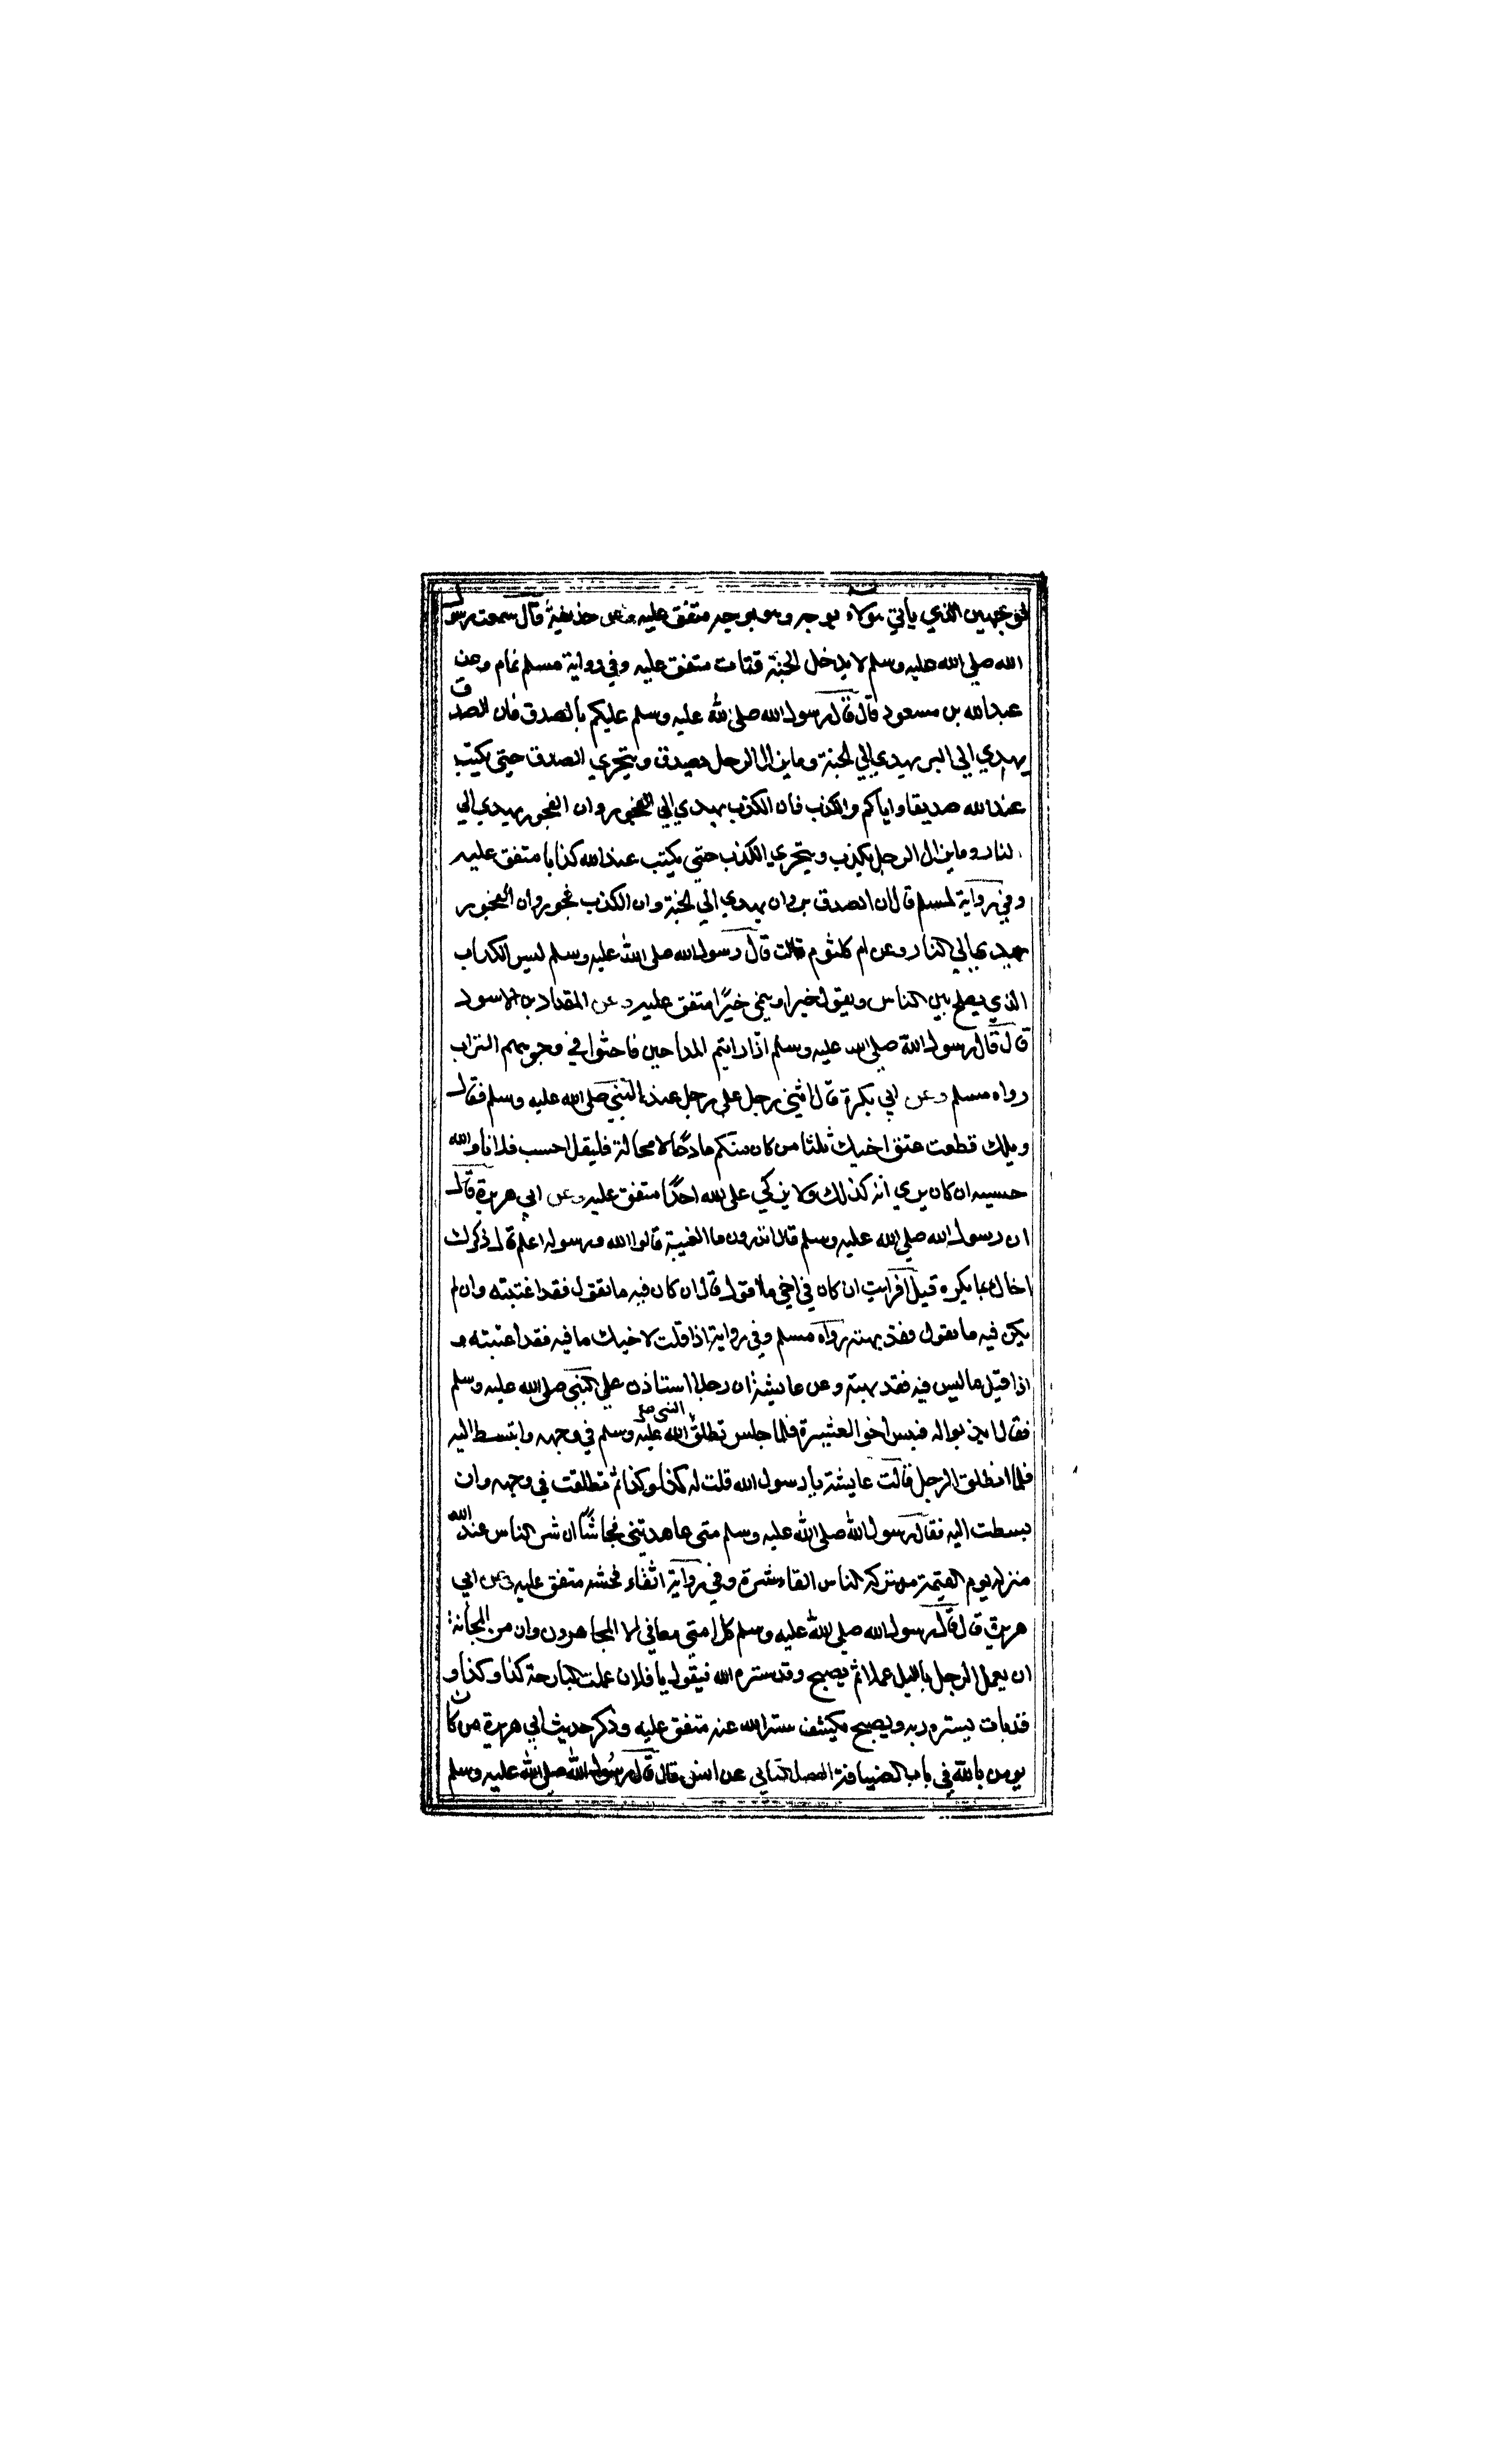 لوجهين الذي يأتي هولاء بوجه وهولا بوجه متفق عليه وعن حذيفة قال سمعت رسول
الله صلي الله عليه وسلم لا يدخل الجنة قتات متفق عليه وفي رواية مسلم نمام وعن
عبدالله بن مسعود قال قال رسول الله صلي الله عليه وسلم عليكم بالصدق فان الصدق
يهدي الي البر يهدي الي الجنة وما يزال الرجل يصدق ويتحري الصدق حيتي يكتب
عند الله صديقا واياكم والكذب فان الكذب يهدي الي الفجور وان الفجور يهدي الي
لنار وما يزال الرجل يكذب ويتحري الكذب حتي يكتب عند الله كذابا متفق عليه
وفي رواية لمسلم قال ان الصدق بر وان يهدي الي الجنة وان الكذب فجور وان الفجور
يهدي الي النار وعن ام كلثوم قالت قال رسول الله صلي الله عليه وسلم ليس الكذاب
الذي يصلح بين الناس ويقول خيرا وينمي خيرًا متفق عليه وعن المقداد بن الاسود
قال قال رسول الله صلي الله عليه وسلم اذا رايتم المداحين فاحثوا في وجوههم التراب
رواه مسلم وعن ابي بكرة قال اثني رجل علي رجل عند النبي صلي الله عليه وسلم فقال
ويلك قطعت عنق اخيك ثلثا من كان منكم مادحًا لا محالة فليقل احسب فلانا والله
حسيبه ان كان يري انه كذلك ولا يزكي علي الله احدًا متفق عليه وعن ابي هريرة قال
ان رسول الله صلي الله عليه وسلم قال اتدرون ما الغيبة قالوا الله ورسوله اعلم قال ذكرك
اخاك بما يكره قيل افرايت ان كان في اخي ما اقول قال ان كان فيه ما تقول فقد اغتبته وان لم
يكن فيه ما تقول فقد بهته رواه مسلم وفي رواية اذا قلت لاخيك ما فيه فقد اغتبته و
اذا قيل ما ليس فيه فقد بهته وعن عايشة ان رجلا استاذن علي النبي صلي الله عليه وسلم
فقال ايذنوا له فبيس اخو العشيرة فلما جلس تطلق النبي صلي الله عليه وسلم في وجهه وابتسط اليه
فلما انطلق الرجل قالت عايشة يا رسول الله قلت له كذا وكذا ثم تطلقت في وجهه وان
بسطت اليه فقال رسول الله صلي الله عليه وسلم متي عاهدتيني فحاشًا ان شر الناس عند الله
منزلة يوم القيمة من تركه الناس اتقاء شره وفي رواية اتقاء فحشه متفق عليه وعن ابي
هريرة قال قال رسول الله صلي الله عليه وسلم كل امتي معافي الا المجاهرون وان من المجانة
ان يعمل الرجل بالليل عملا ثم يصبح وقد ستره الله فيقول يا فلان عملت البارحة كذا وكذا و
قد بات يستره ربه ويصبح يكشف ستر الله عنه متفق عليه وذكر حديث ابي هريرة من كان
يومن بالله في باب الضيافة الفصل الثاني عن انس قال قال رسول الله صلي الله عليه وسلم